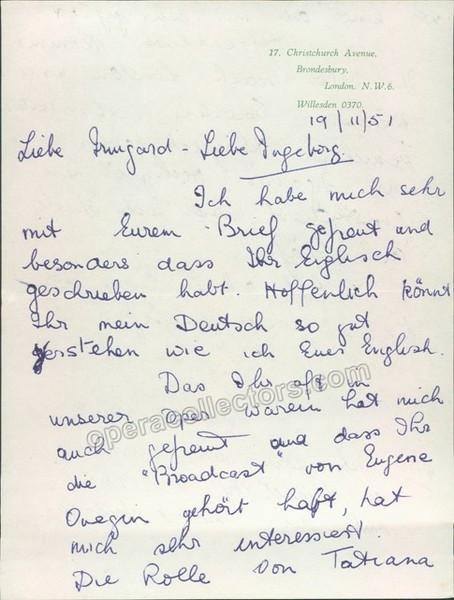 17, Christchurch Avenue,
Brondesbury,
London. N.W.6.
Willesden 0370.
19/11/51
Liebe Irmgard - Liebe Ingeborg.
Ich habe mich sehr
mit Eurem Brief gefreut und
besonders dass Ihr Englisch
geschrieben habt. Hoffenlich könnt
Ihr mein Deutsch so gut
verstehen wie ich Euer English.
Das Ihr oft in
unserer Oper waren hat mich
auch gefreut und dass Ihr
die "Broadcast" von Eugene
Onegin gehört habt, hat
mich sehr interessiert.
Die Rolle von Tatiana
operacollectors.com